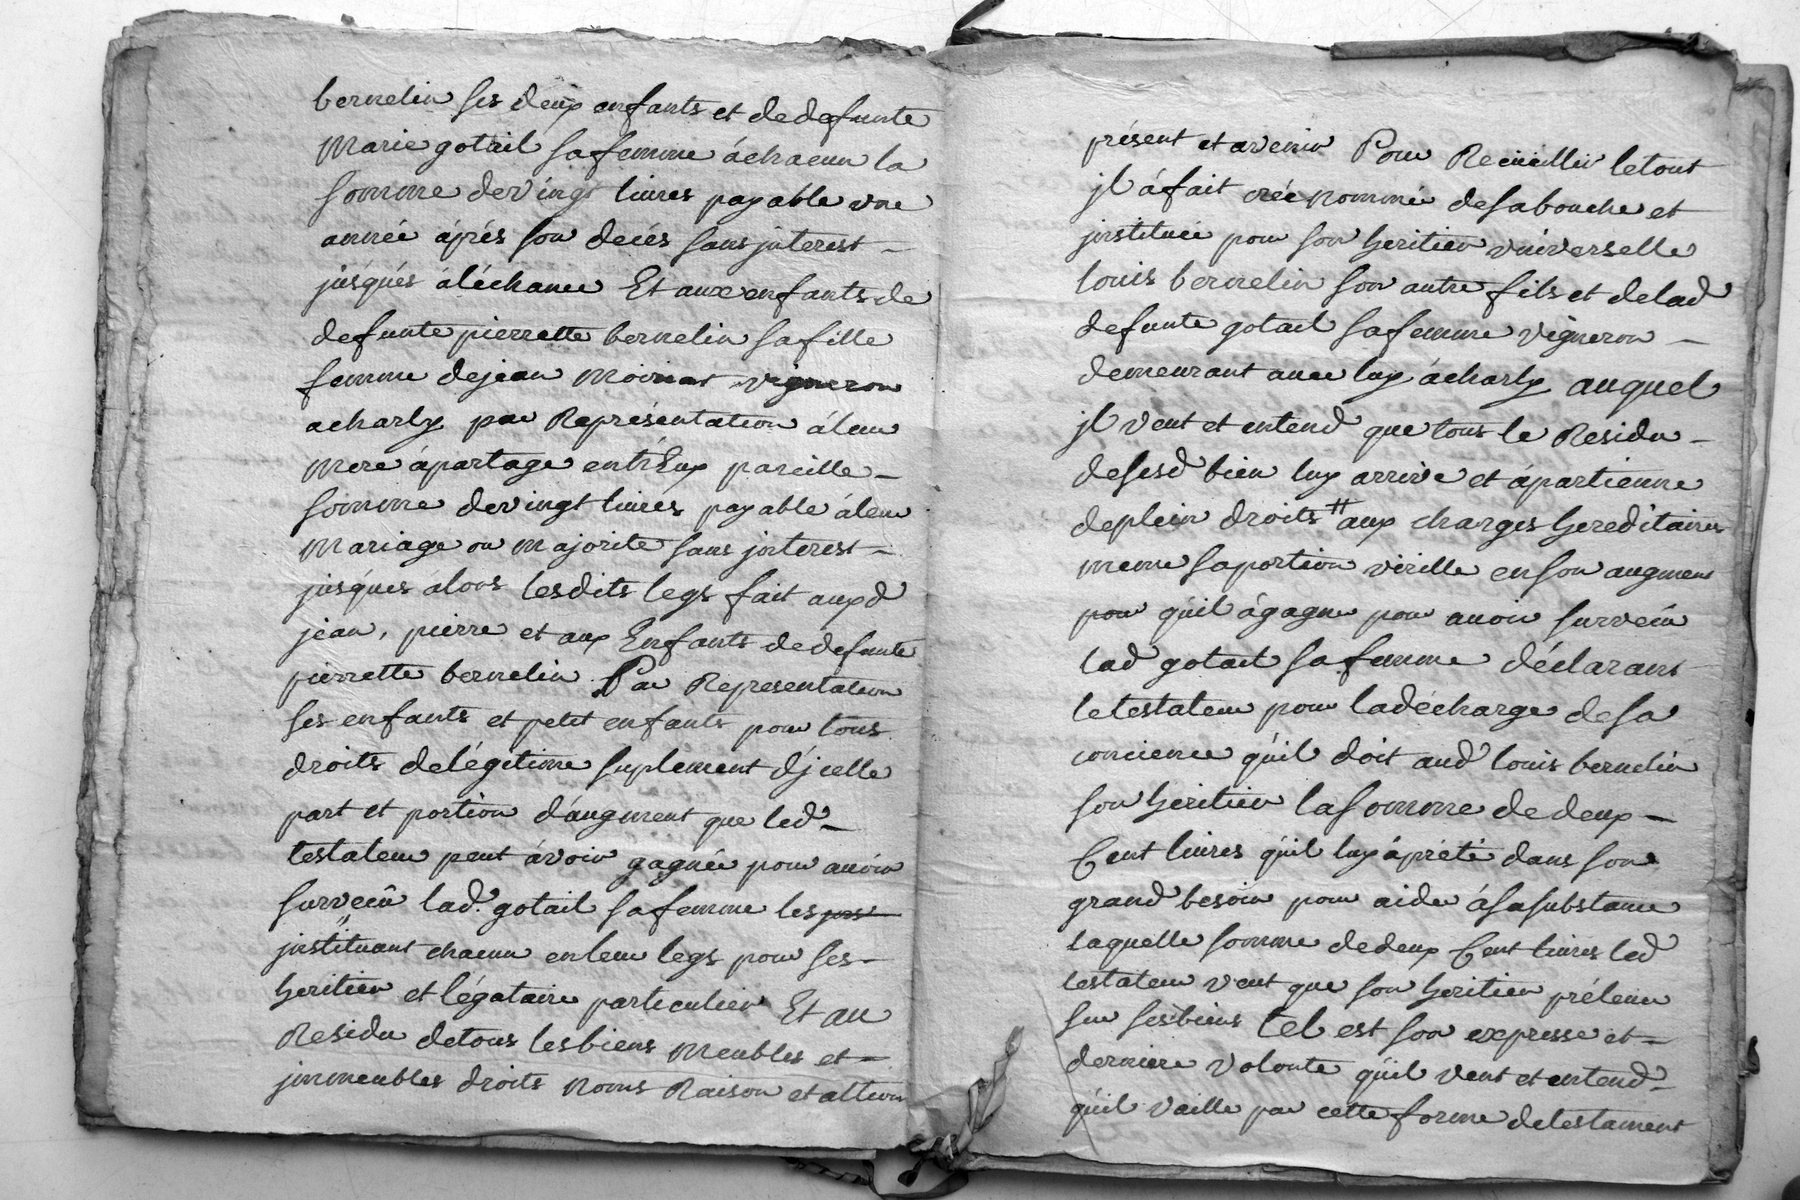 bernelin ses deux enfants et de defunte
Marie gotail sa femme á chacun la
somme de vingt livres payable vne
année áprés son decés sans jnterest
jusqués áléchance Et aux enfants de
defunte pierrette bernelin sa fille
femme de jean Moinat vigneron
a charly par Représentation á leur
Mere ápartage entr'Eux pareille
somme de vingt livres payable áleur
Mariage ou Majorite sans jnterest
jusques álors lesdits legs fait auxd
jean, pierre et aux Enfants de defunte
pierrette bernelin Par Representation
ses enfants et petit enfants pour tous
droits delégitime suplement d'jcelle
part et portion d'augment que led
testateur peut ávoir gagnée pour auoir
surveçû lad. gotail sa femme les
jnstituant chacun en leur legs pour ses
heritier et légataire particulier Et au
Residu de tous les biens Meubles et
jmmeubles droits Noms Raison et attion
présent et avenir Pour Recüeillir le tout
jl á fait créé nommé de sa bouche et
jnstituée pour son heritier vniverselle
louis bernelin son autre fils et de lad
defunte gotail sa femme vigneron
demeurant auec luy á charly auquel
jl veut et entend que tous le Residu
de sesd bien luy arrive et ápartienne
de plein droits aux charges hereditaires
meme sa portion virille en son augment
pour qu'il á gagner pour auoir surveçû
lad gotail sa femme déclarant
le testateur pour la décharge de sa
concience qu'il doit aud louis bernelin
son heritier la somme de deux
Cent livres qu'il luy á prété dans son
grand besoin pour aider á sa substance
laquelle somme de deux Cent livres led
testateur veut que son heritier préleve
sur ses biens tel est son expresse et
derniere volonte qu'il veut et entend
qu'il vaille par cette forme de testament